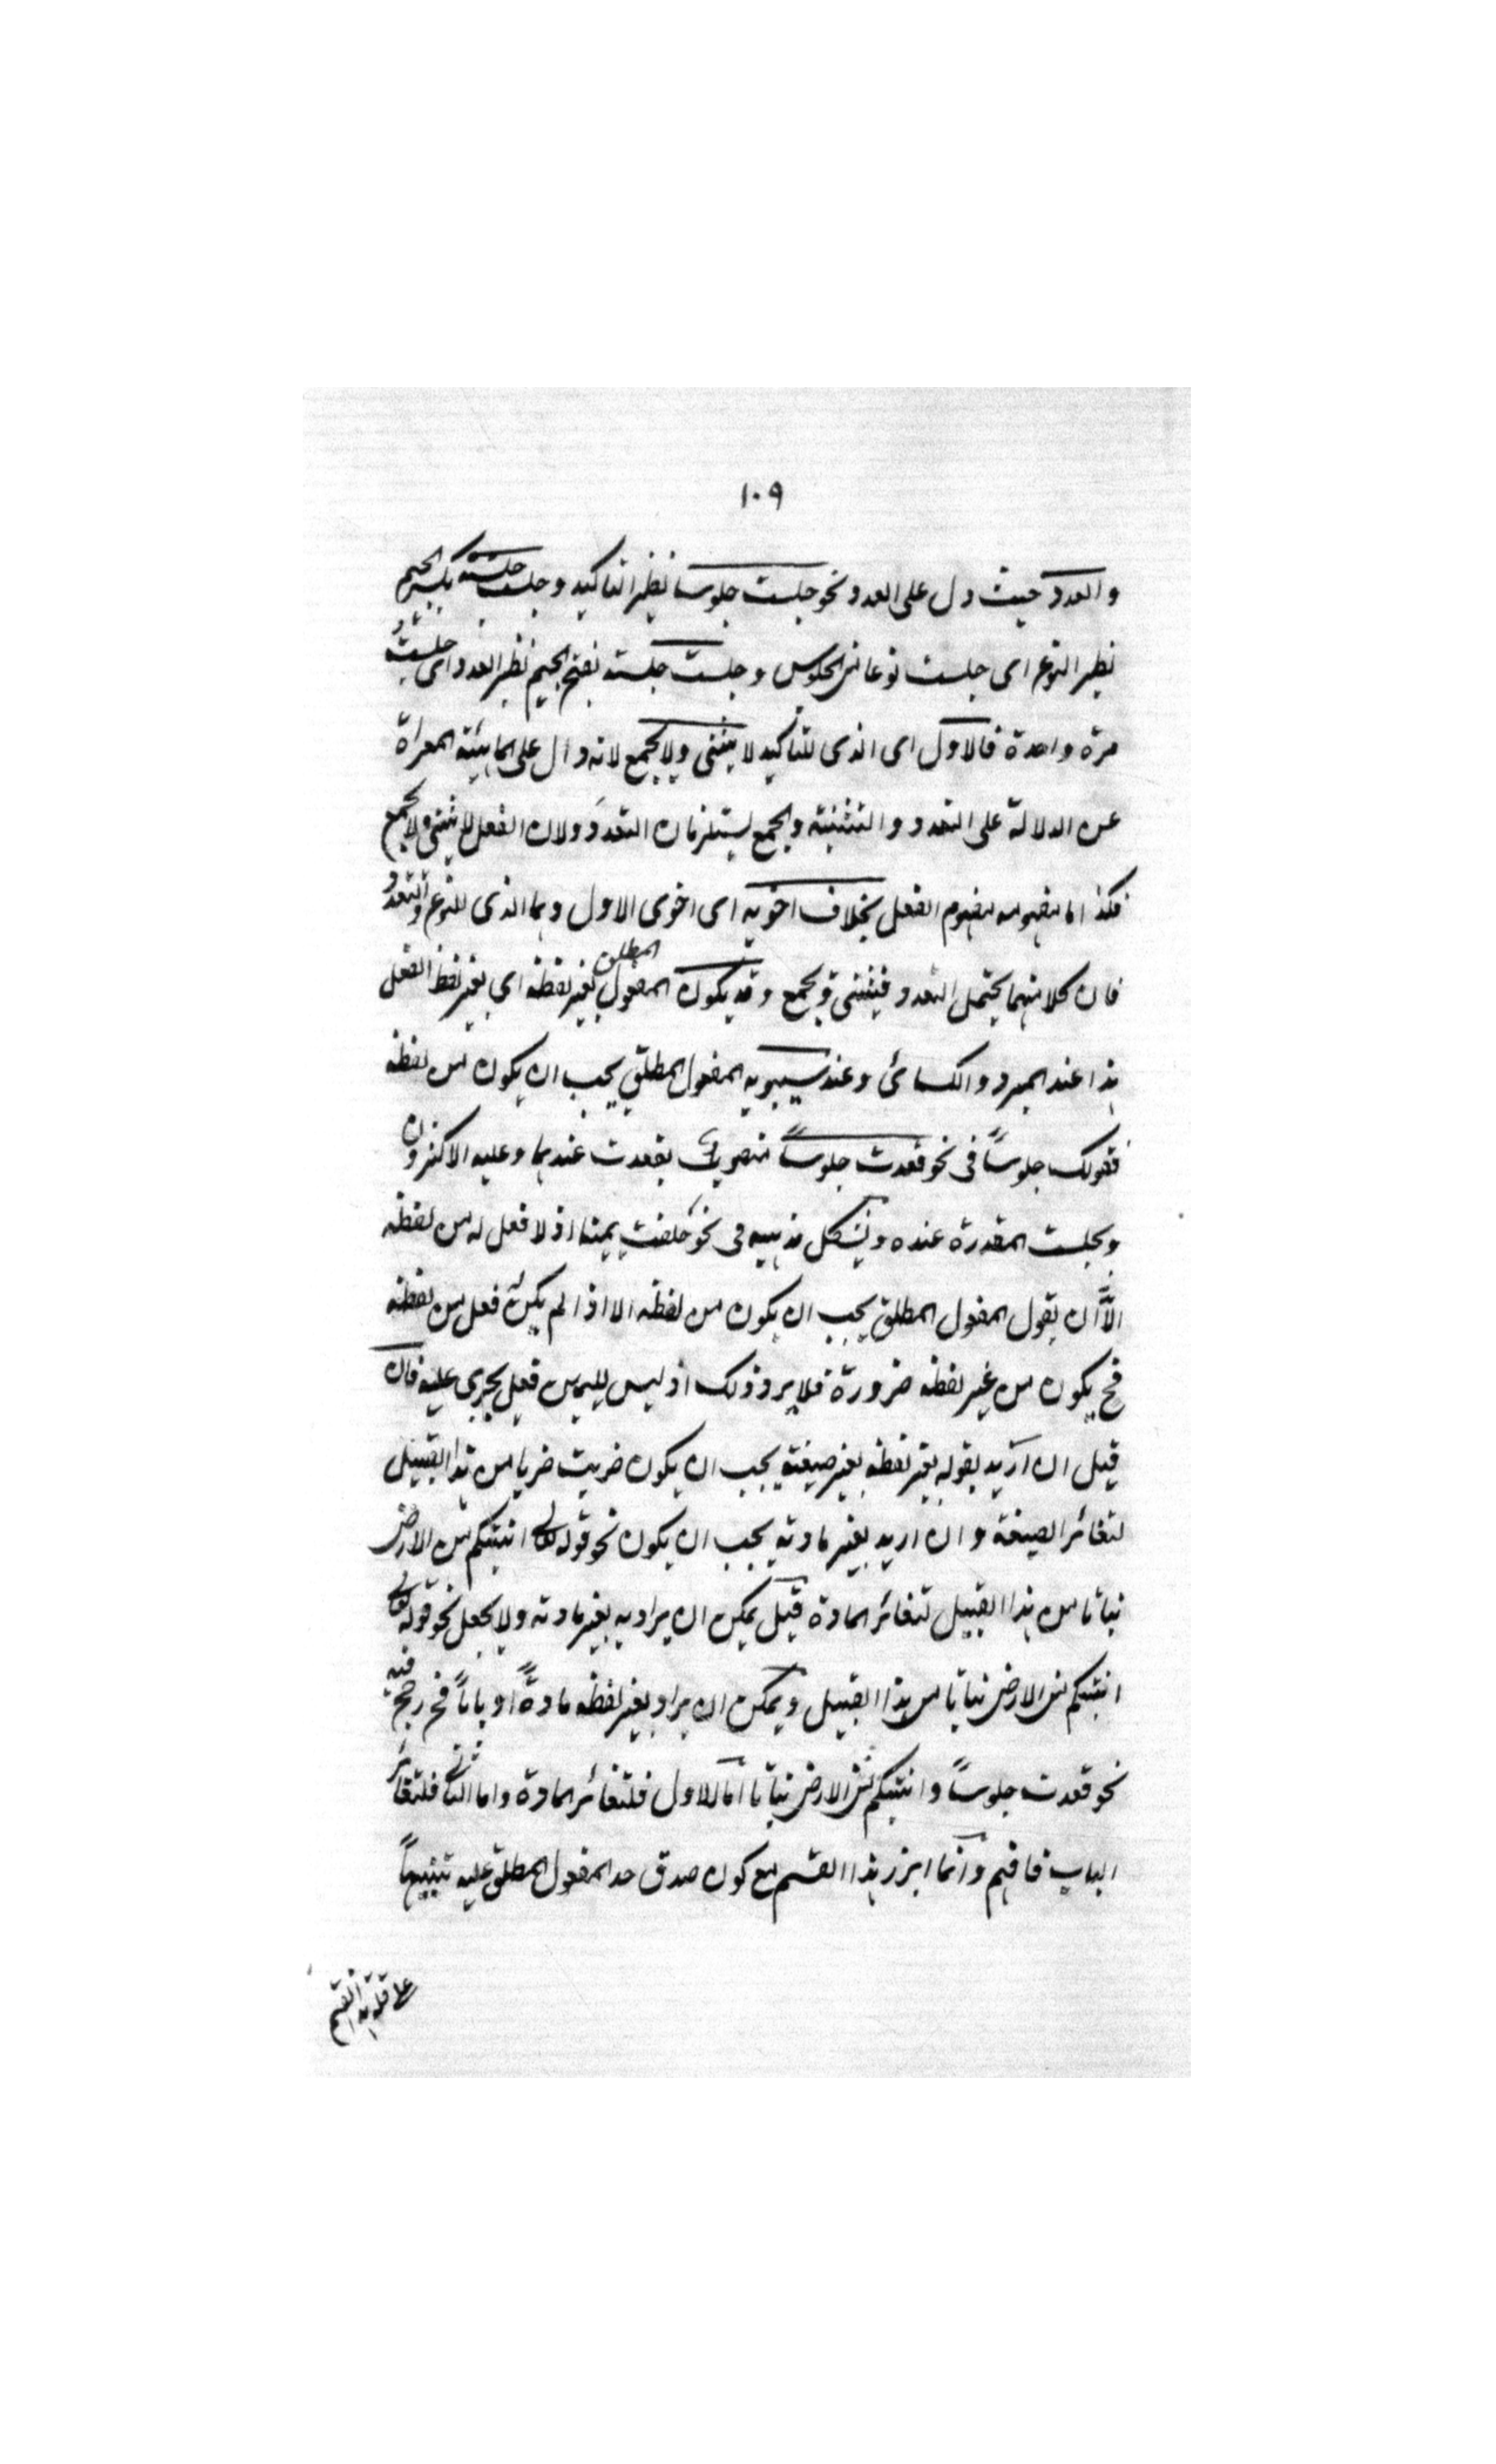 ١٠٩
والعدد حيث دل على العدد نحو جلست جلوسا نظير التاكيد وجلست جلسة بكسر الجيم
نظير النوع اى جلست نوعا من الجلوس وجلست جلسة بفتح الجيم نظير العدد اى جلست
مرة واحدة فالاول اى الذى للتاكيد لا يثنى ولا يجمع لانه دال على الماهية المعراة
عن الدلالة على التعدد والتثنية والجمع يستلزمان التعدد ولان الفعل لا يثنى ولا يجمع
فكذا ما مفهومه مفهوم الفعل بخلاف اخويه اى اخوى الاول وهما الذى للنوع والتعدد
فان كلا منهما يحتمل التعدد فيثنى ويجمع وقد يكون المفعول المطلق بغير لفظه اى بغير لفظ الفعل
هذا عند المبرد والكسائى وعند سيبويه المفعول المطلق يجب ان يكون من لفظه
فقولك جلوساً فى نحو قعدت جلوساً منصوب بقعدت عندهما وعليه الاكثرون
وبجلست المقدرة عنده ويشكل مذهبه فى نحو حلفت يمينا اذ لا فعل له من لفظه
الّا ان يقول المفعول المطلق يجب ان يكون من لفظه الا اذا لم يكن له فعل من لفظه
فح يكون من غير لفظه ضرورة فلا يرد ذلك اذ ليس لليمين فعل يجرى عليه فان
قيل ان اريد بقوله بغير لفظه بغير صيغته يجب ان يكون ضربت ضربا من هذا القبيل
لتغائر الصيغة وان اريد بغير مادته يجب ان يكون نحو قوله تعالى انبتكم من الارض
نباتا من هذا القبيل لتغائر المادة قيل يمكن ان يراد به بغير مادته ولا يجعل نحو قوله تعالى
انبتكم من الارض نباتا من هذا القبيل ويمكن ان يراد بغير لفظه مادةً او باباً فح رجح فيه
نحو قعدت جلوساً وانبتكم من الارض نباتا اما الاول فلتغائر المادة واما الثانى فلتغائر
الباب فافهم وانما ابرز هذا القسم مع كون صدق حد المفعول المطلق عليه تنبيهاً
على قلة هذا القسم